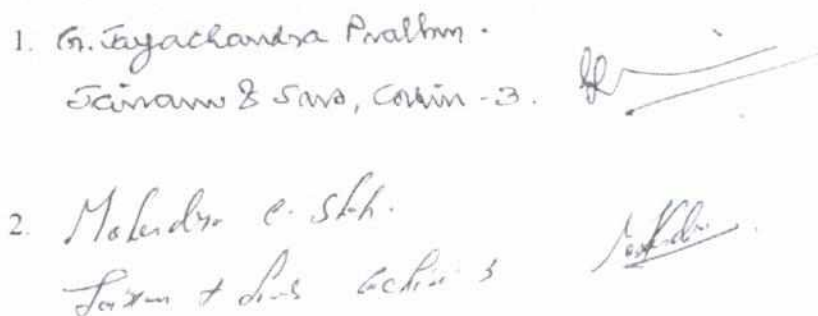 1. G. Jayachandra Prabhu.
Jairam & Sons, Cochin - 3.
2. Mahendra C. Shah.
Jairam + Sons Cochin 3